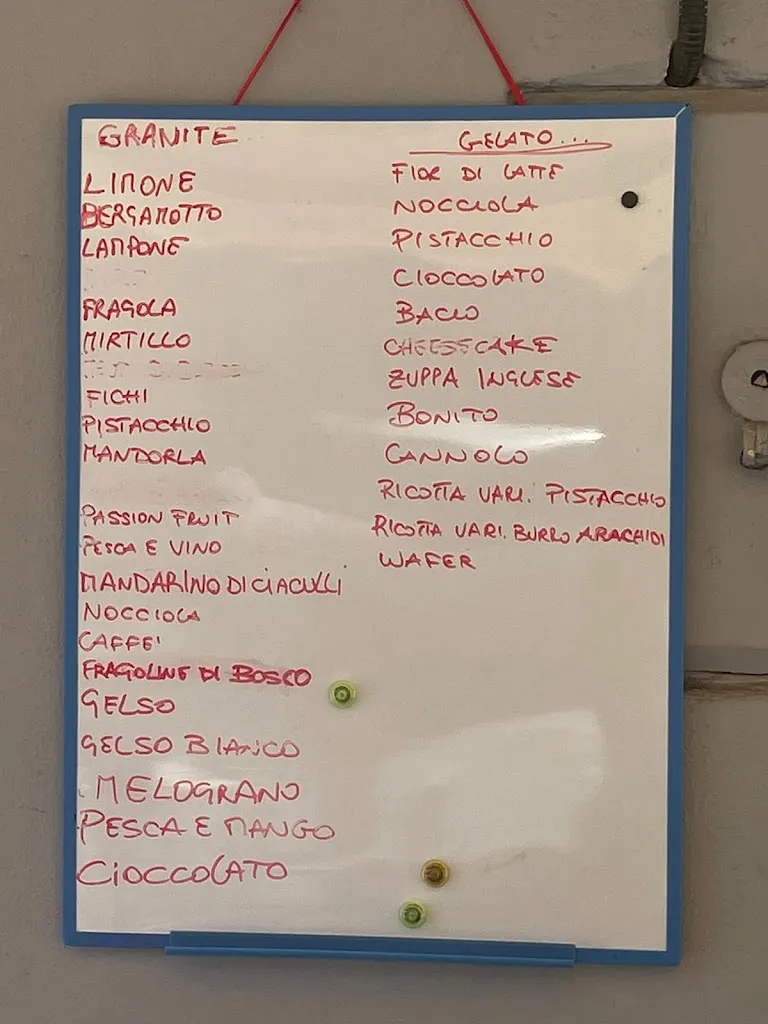 GRANITE
LIMONE
BERGAMOTTO
LAMPONE
FRAGOLA
MIRTILLO
FICHI
PISTACCHIO
MANDORLA
PASSION FRUIT
PESCA E VINO
MANDARINO DI CIACULLI
NOCCIOLA
CAFFE'
FRAGOLINE DI BOSCO
GELSO
GELSO BIANCO
MELOGRANO
PESCA E MANGO
CIOCCOLATO
GELATO...
FIOR DI LATTE
NOCCIOLA
PISTACCHIO
CIOCCOLATO
BACIO
CHEESECAKE
ZUPPA INGLESE
BONITO
CANNOLO
RICOTTA VARI. PISTACCHIO
RICOTTA VARI. BURRO ARACHIDI
WAFER